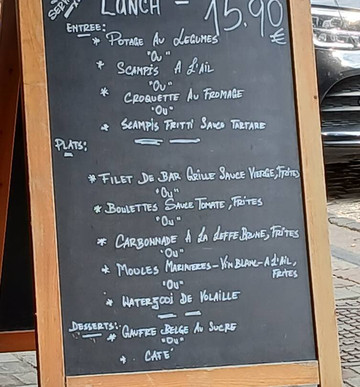 LUNCH - 15.90 €
ENTREE:
* POTAGE AU LEGUMES
"OU"
* SCAMPIS A L'AIL
"OU"
* CROQUETTE AU FROMAGE
"OU"
* SCAMPIS FRITTI SAUCE TARTARE
PLATS:
* FILET DE BAR GRILLE SAUCE VIERGE, FRITES
"OU"
* BOULETTES SAUCE TOMATE, FRITES
"OU"
* CARBONNADE A LA LEFFE BRUNE, FRITES
"OU"
* MOULES MARINIERES - VIN BLANC - A L'AIL,
FRITES
"OU"
* WATERZOOI DE VOLAILLE
DESSERTS: * GAUFRE BELGE AU SUCRE
"OU"
* CAFE